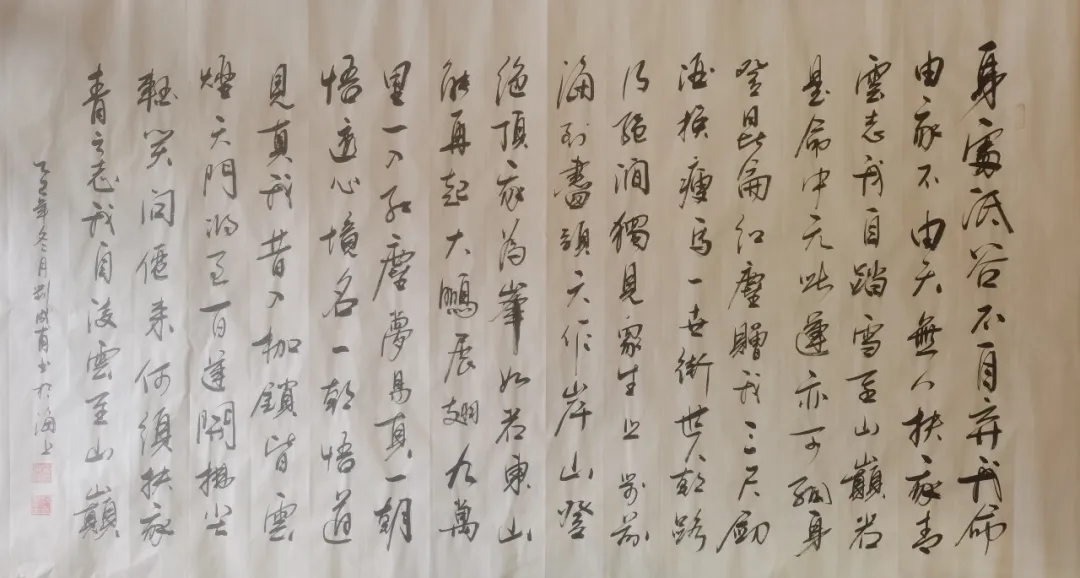 身處低谷不自弃我命
由我不由天無人扶我青
雲志我自踏雪至山巔若
是命中无此運亦可孤身
登昆侖紅塵贈我三尺劍
酒換瘦馬一世街世人朝路
絕澗獨見眾生止步前
海到盡頭天作岸山登
絕頂我為峯如若東山
能再起大鵬展翅九萬
里一入紅塵夢易真一朝
悟透心境名一朝悟道
見真我昔日枷鎖皆雲
煙天門一百運開拂尘
輕笑問僊來何須扶我
青雲志我自凌雲至山巔
乙巳年冬月劉成有书於海上